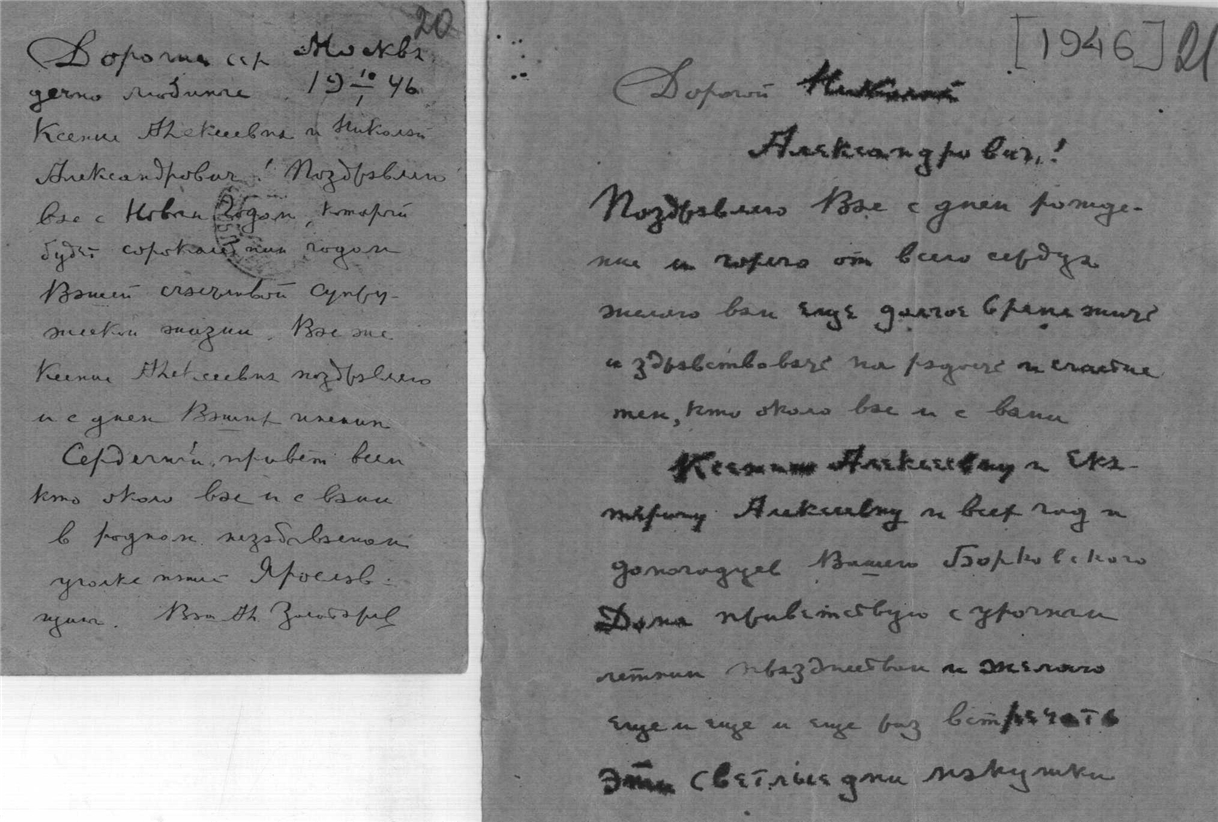 20
Дорогие сер Москва
дечно любимые 19 10/I 46
Ксения Алексеевна и Николай
Александрович! Поздравляю
вас с Новым Годом, который
будет сороковым годом
Вашей счастливой супру-
жеской жизни. Вас же
Ксения Алексеевна поздравляю
и с днем Ваших именин
Сердечный привет всем
кто около вас и с вами
в родном незабвенном
уголке нашей Ярослав-
щины. Ваш Ал Золотарев
[1946] 21
Дорогой Николай
Александрович!
Поздравляю Вас с днем рожде-
ние и горячо от всего сердца
желаю вам еще долгое время жить
и здравствовать на радость и счастие
тем, кто около вас и с вами
Ксению Алексеевну и Ека-
терину Алексеевну и всех чад и
домочадцев Вашего Борковского
Дома приветствую с урочным
летним празднеством и желаю
еще и еще и еще раз встречать
Эти светлые дни макушки